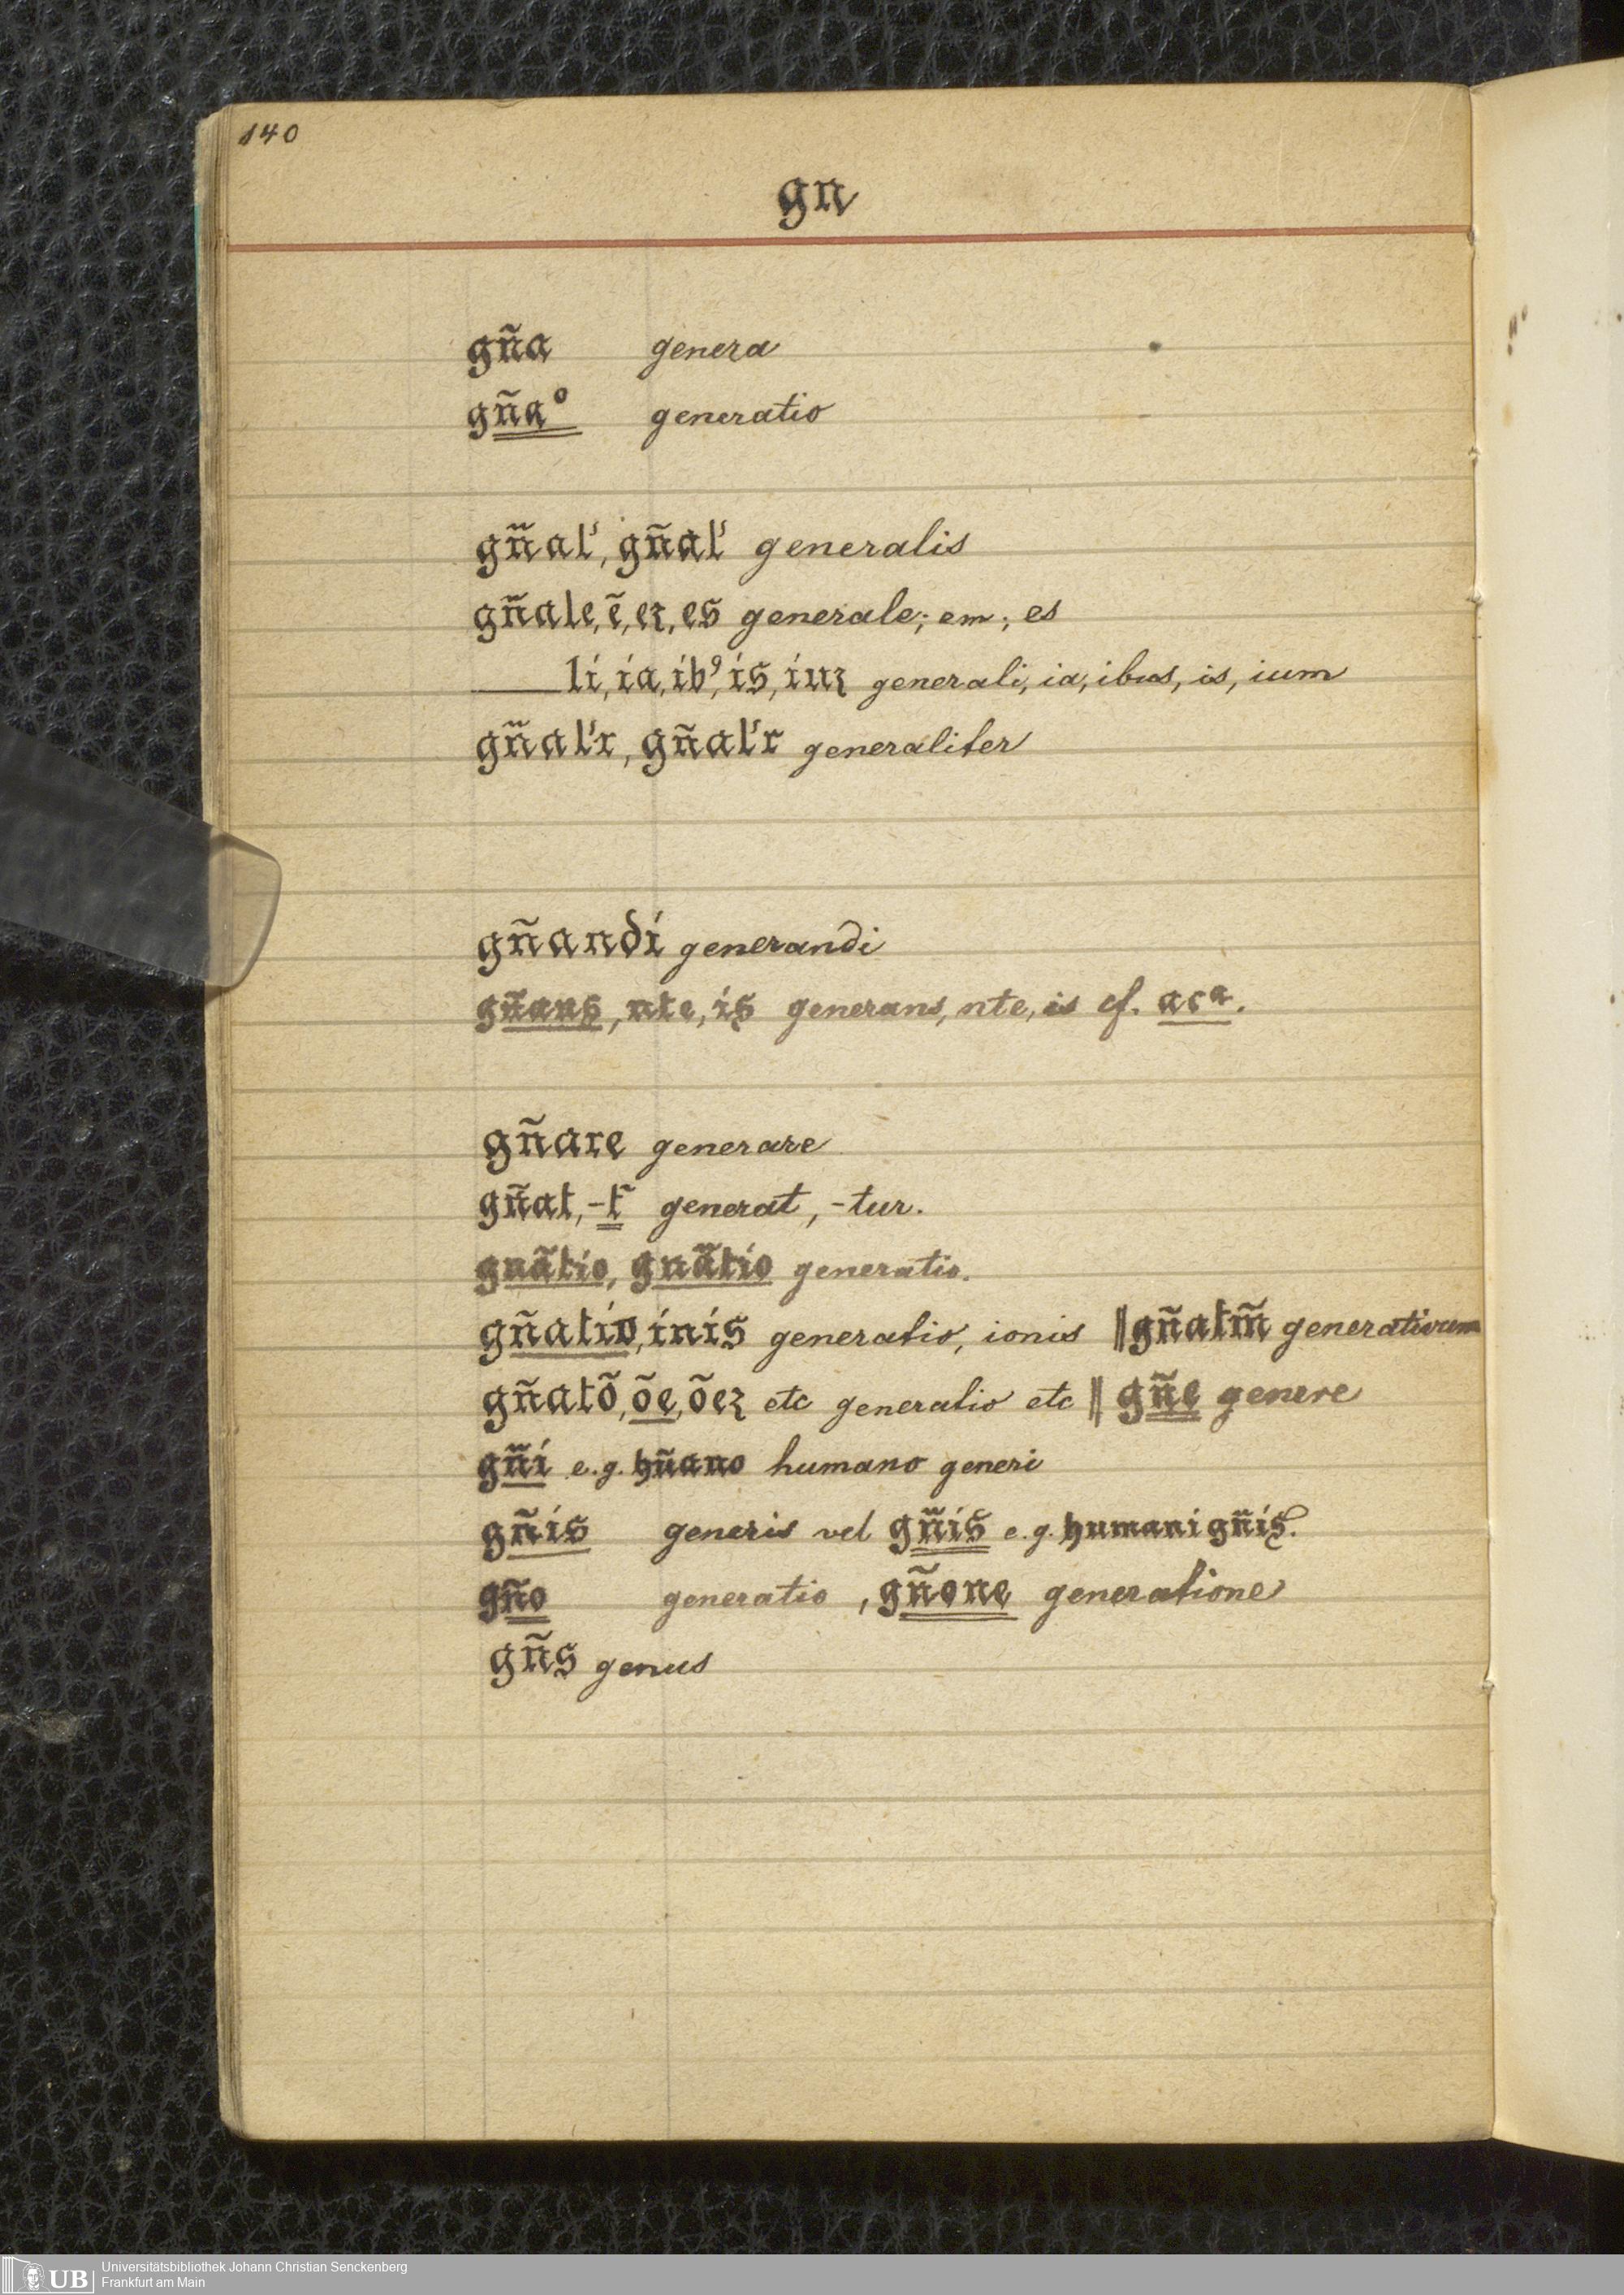 140
gn
gña genera
gña° generatio
gñal', gñal' generalis
gñale, ẽ, eꝛ, es generale; em; es
li, ia, ib⁹, is, iuꝛ generali, ia, ibus, is, ium
gñal'r, gñal'r generaliter
gñandi generandi
gñans, nte, is generans, nte, is cf. acᵃ.
gñare generare
gñat, -t̃ generat, -tur.
gnãtio, gnãtio generatio.
gñatio, inis generatio, ionis || gñatm̃ generativum
gñatõ, õe, õeꝛ etc generatio etc || gñe genere
gñi e.g. hñano humano generi
gñis generis vel gñis e.g. humani gñis.
gño generatio, gñone generatione
gñs genus
UB Universitätsbibliothek Johann Christian Senckenberg
Frankfurt am Main